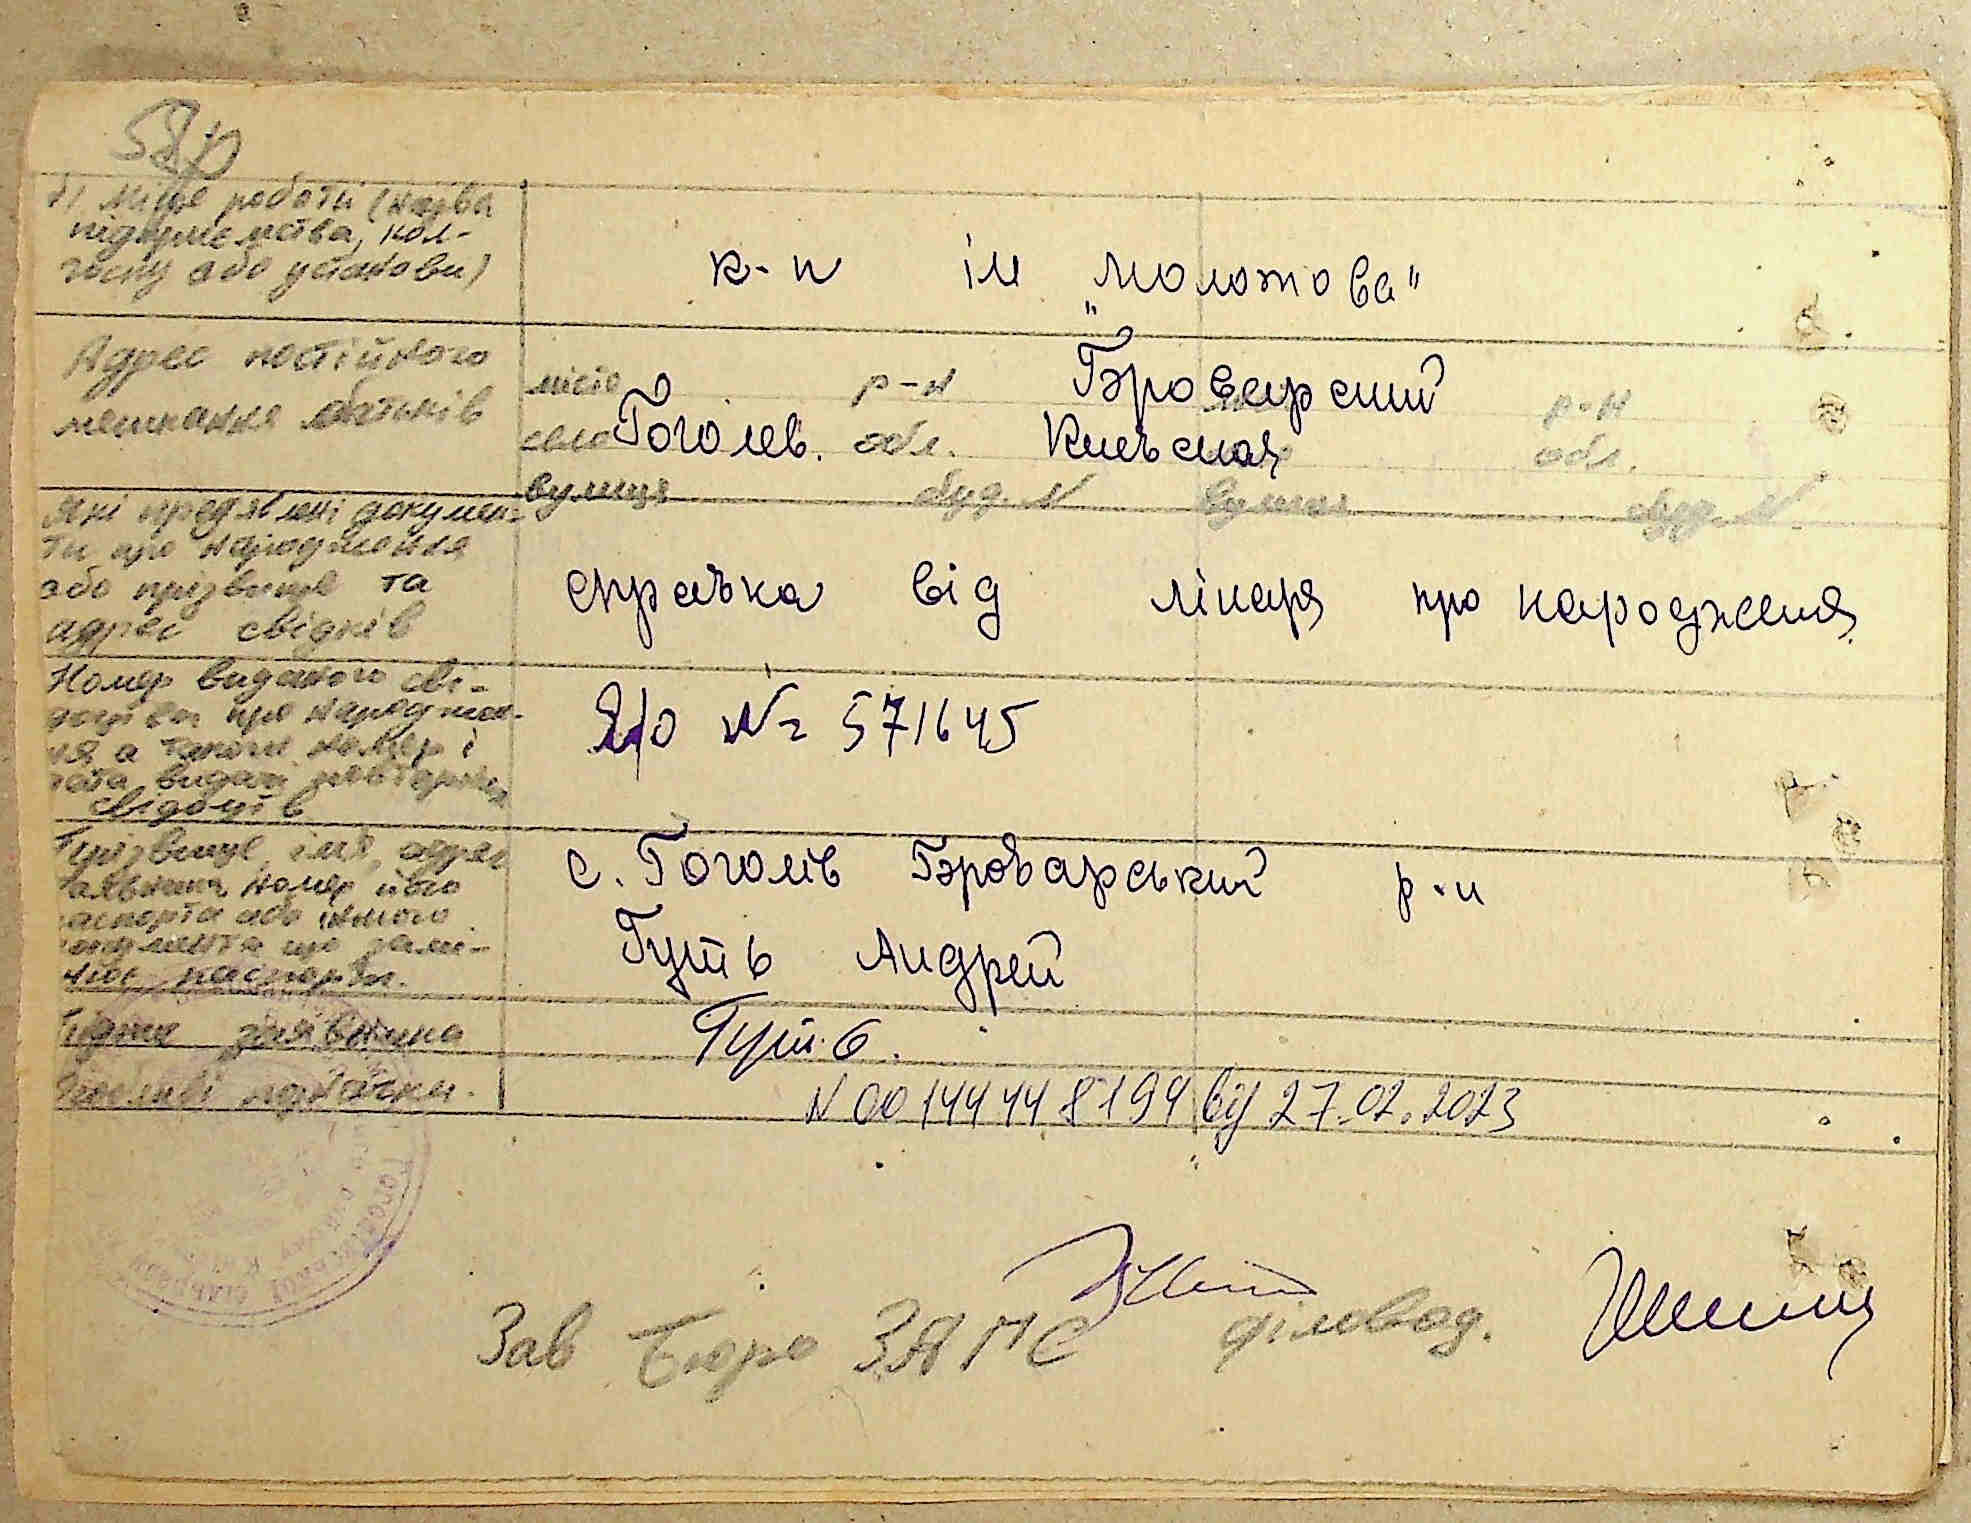 58р
д) Місце роботи (назва
підприємства, кол-
госпу або установи)
к-п ім „Молотова"
Адрес постійного
мешкання батьків
місто р-н Броварский р-н
село Гоголев. обл. Киевская обл.
вулиця буд. N вулиця буд. N
Які предявлені докумен-
ти про народження
або прізвище та
адрес свідків
справка від лікаря про народження
Номер виданого сві-
доцтва про народжен-
ня а також номер і
дата видачі повторних
свідоцтв
ЯЮ № 571645
Прізвище, імя, адрес
заявника, номер його
паспорта або іншого
документа що замі-
няє паспорт.
с. Гоголів Броварський р-н
Гуть Андрей
Підпис заявника
Гуть.
Особливі помітки.
N 00144448194 від 27.02.2023
Зав Бюро ЗАГС діловод.